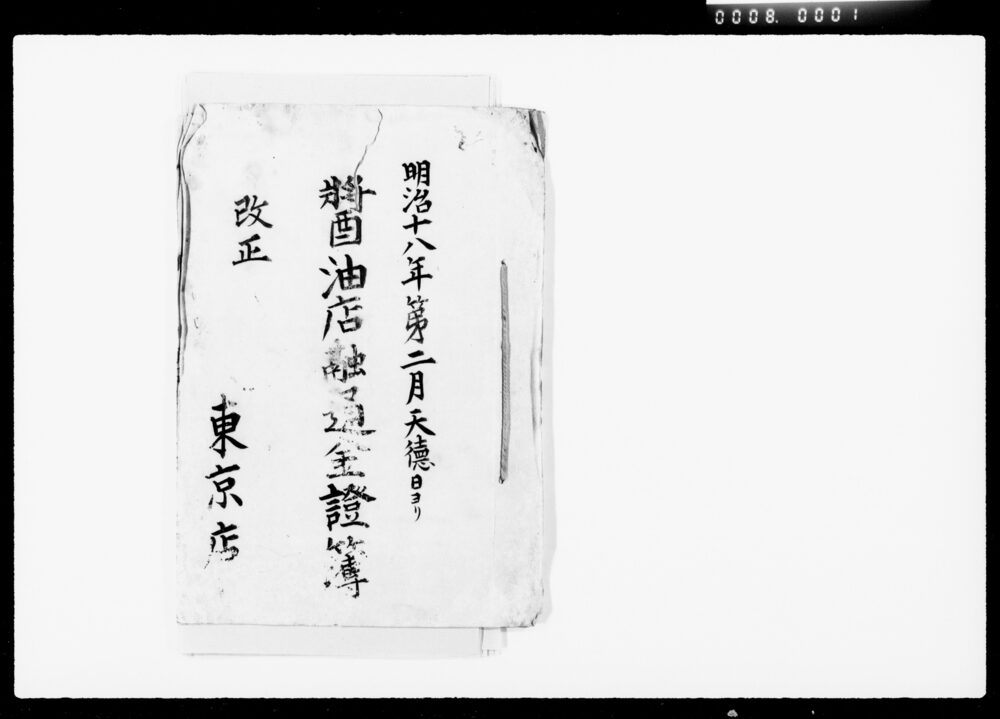 0008. 0001
明治十八年第二月天德日ヨリ
醬油店融通金證簿
改正
東京店